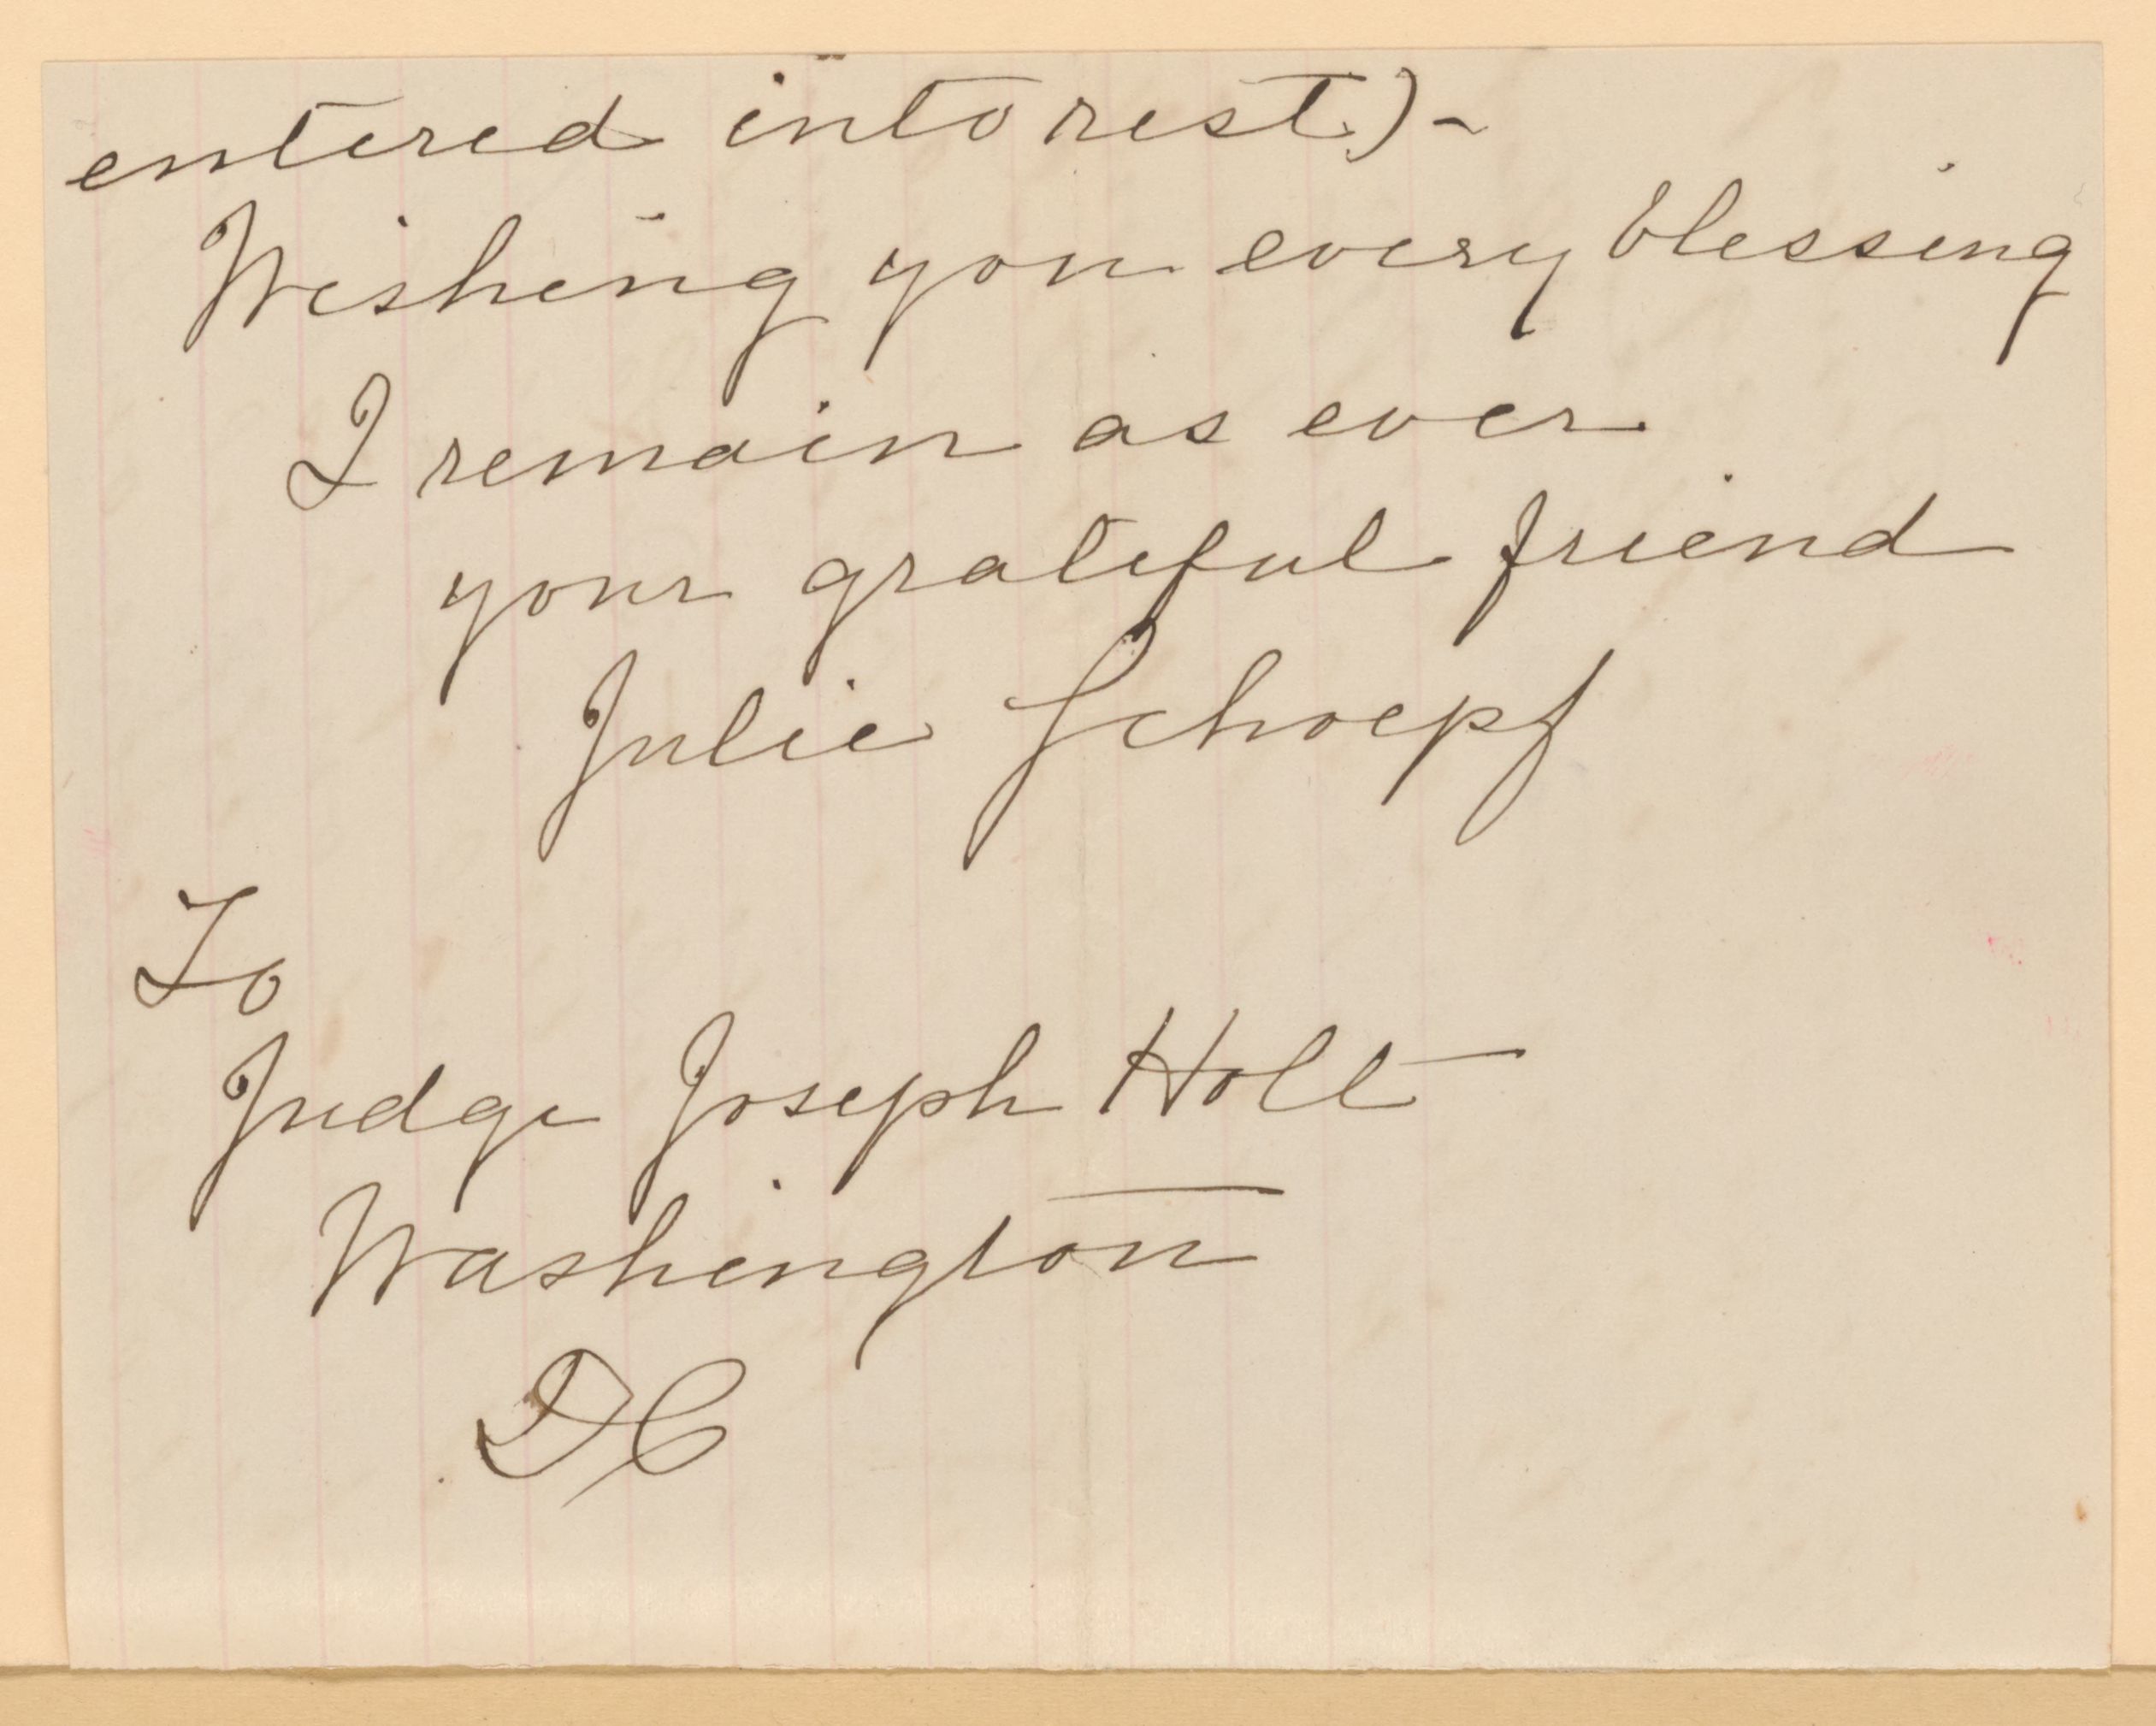 entered into rest.)-
Wishing you every blessing
I remain as ever
your grateful friend
Julie Schoepf
To
Judge Joseph Holt
Washington
DC